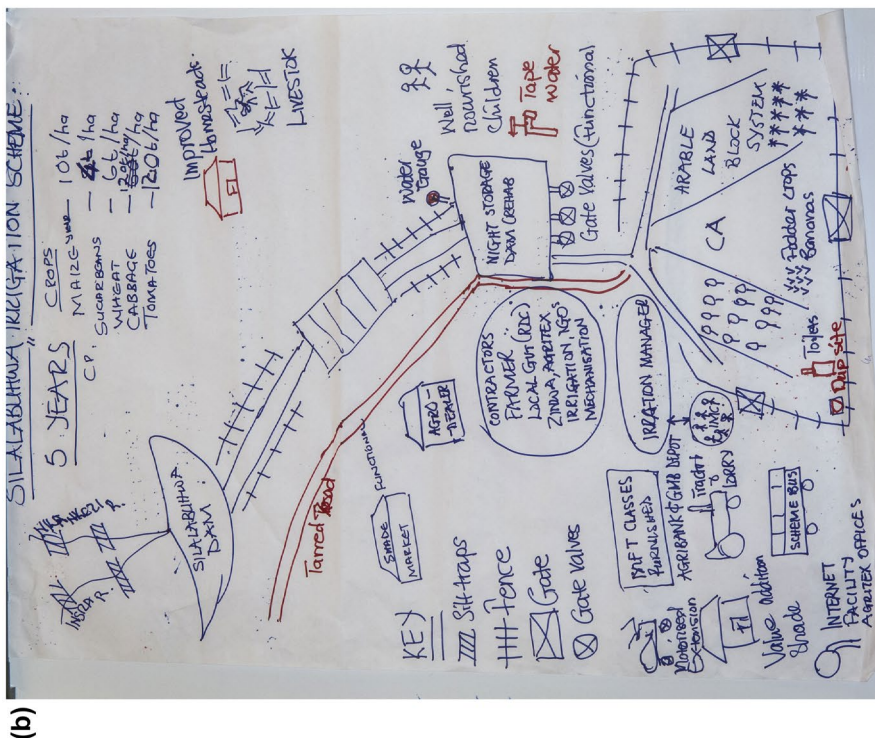 (b)
SILALABUHWA IRRIGATION SCHEME.
5 YEARS
CROPS
MAIZE — 10t/ha
SUGARBEANS — t/ha
WHEAT — 6t/ha
CABBAGE — 120t/ha
TOMATOES — 120t/ha
C.P.
Improved
Homesteads
LIVESTOK
SILALABUHWA
DAM
Tarred Road
Water
Gauge
Well
nourished
children
Tape
Water
NIGHT STORAGE
DAM (REHAB
Gate Valves (functional
AGRO-
DEALER
FUNCTIONAL
SHADE
MARKET
CONTRACTORS
FARMER
LOCAL GVMT (RDC)
ZINWA, AGRITEX
IRRIGATION, NGOs
MECHANISATION
IRRATION MANAGER
ARABLE
LAND
BLOCK
SYSTEM
CA
Fodder Crops
Bananas
Toilets
Drip site
KEY
Silt traps
Fence
Gate
Gate Valves
FURNISHED
AGRIBANK & GMB DEPOT
Tractor
LORRY
IMC
SCHEME BUS
Motorised
Extension
Value addition
Shade
INTERNET
FACILITY
AGRITEX OFFICES